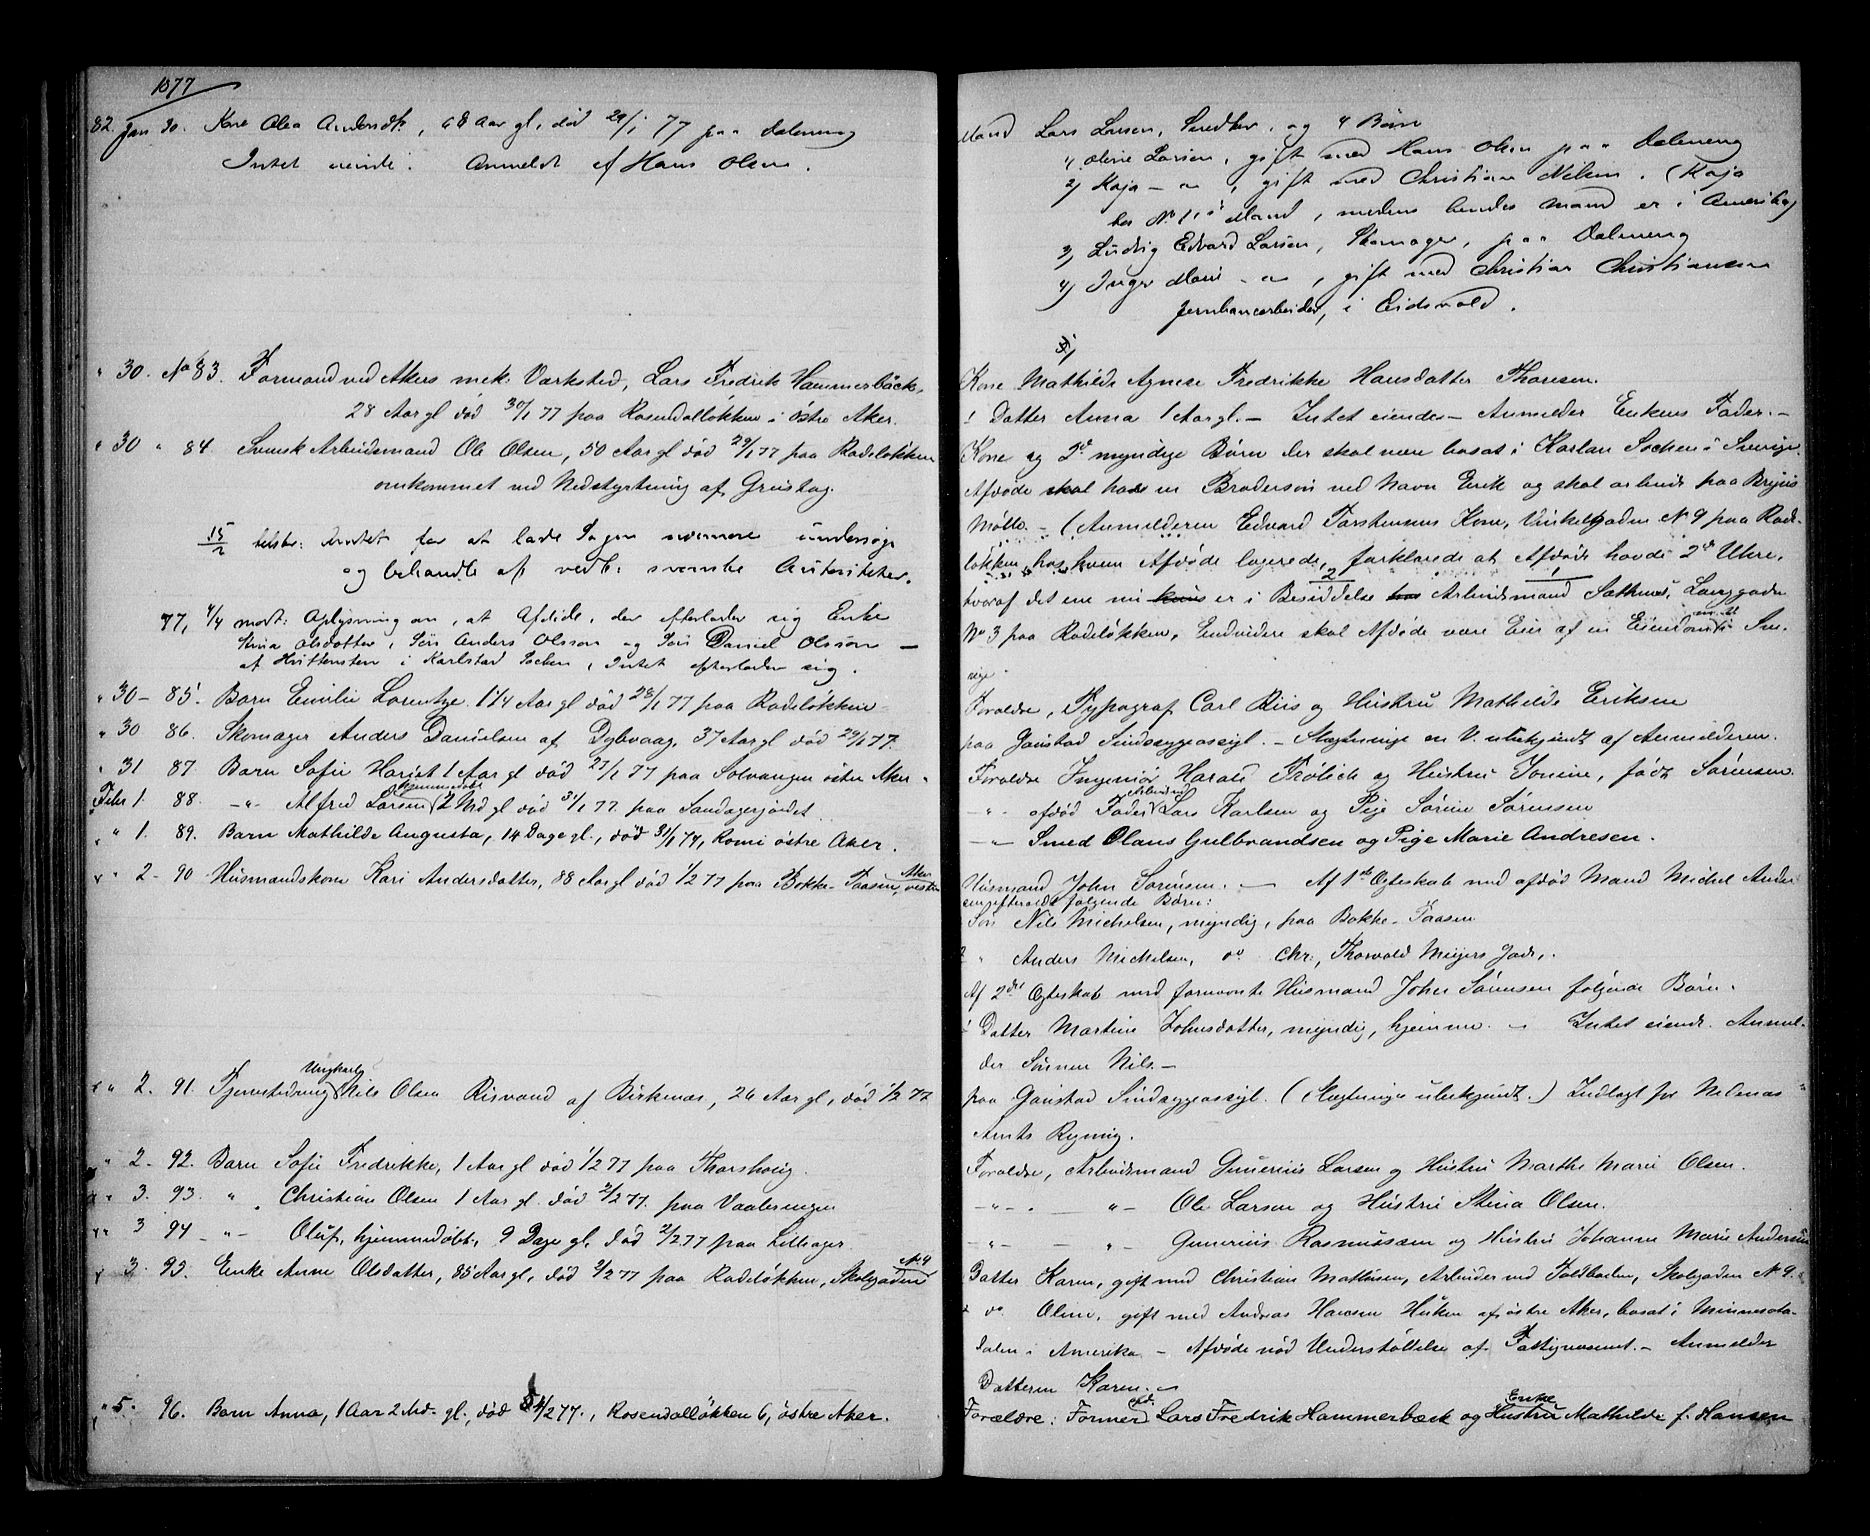 1877
82. Jan 30. Kone Olea Andersdtr, 68 Aar gl. død 29/1 77 paa Daleneng
Intet eiende. Anmeldt af Hans Olsen.
" 30. No 83. Formand ved Akers mek. Værksted, Lars Fredrik Hammerbäck,
28 Aar gl død 30/1 77 paa Rosendalløkken i østre Aker.
" 30 " 84. Svensk Arbeidsmand Ole Olsen, 50 Aar gl død 29/1 77 paa Rodeløkken
omkommet ved Nedstyrtning af Grustag.
15/2 for at lade Sagen nærmere undersøge
og behandle af vedk. svenske Autoriteter.
77, 4/4 modt: Oplysning om, at Afdøde, der efterlader sig Enke
Stina Olsdotter, Søn Anders Olsson og Søn Daniel Olsson —
af Hvittensten i Karlstad Sochen, Intet efterlader sig.
" 30 - 85. Barn Emilie Lorentze 1 1/4 Aar gl død 28/1 77 paa Rodeløkken
" 30 86. Skomager Anders Danielsen af Dybvaag, 37 Aar gl død 29/1 77.
" 31 87. Barn Sofie Hariet 1 Aar gl død 27/1 77 paa Solvangen østre Aker.
Febr 1. 88. -"- Alfred Larsen hjemmedøbt 2 Md gl død 31/1 77. paa Sandagerjordet.
" 1. 89. Barn Mathilde Augusta, 14 Dage gl., død 31/1 74, Romi østre Aker.
" 2 - 90 Husmandskone Kari Andersdatter, 88 Aar gl død 1/2 77 paa Bakke-Taasen, Aker vestre
" 2. 91. Tjenestedreng Ungkarl Nils Olsen Risvand af Birkenæs, 26 Aar gl., død 1/2 77
" 2 - 92. Barn Sofie Fredrikke, 1 Aar gl død 1/2 77 paa Thorshoug.
" 3. 93. " Christian Olsen 1 Aar gl. død 2/2 77. paa Vaalerengen
" 3 94 -"- Oluf, hjemmedøbt, 9 Dage gl, død 2/2 77 paa Lilleager.
3. 95. Enke Anne Olsdatter, 85 Aar gl., død 2/2 77 paa Rodeløkken, Skolegaden No 9
" 5. 96. Barn Anna, 1 Aar 2 Md. gl., død 4/2 77., Rosendalløkken 6, østre Aker.
Mand Lars Larsen, Snedker, og 4 Børn
1) Oline Larsen, gift med Hans Olsen paa Daleneng
2) Kaja — " — , gift med Christian Nilsen. (Kaja
bor No 1's Mand, medens hendes Mand er i Amerika)
3) Ludvig Edvard Larsen, Skomager, paa Daleneng
4) Inger Marie — " — , gift med Christian Christiansen
Jernbanearbeider, i Eidsvold.
5)
Kone Mathilde Agnese Fredrikke Hansdatter Thoresen.
1 Datter Anna 1 Aar gl. — Intet eiende — Anmelder Enkens Fader. —
Kone og 2de myndige Børn der skal være bosat i Karlan Sochen i Sverige.
Afdøde skal have en Brodersøn ved Navn Erik og skal arbeide paa Bryns
Mølle. — (Anmelderen Edvard Torstensens Kone, Vinkelgaden No 9 paa Rode-
løkken, hos hvem Afdøde logerede, forklarede at Afdøde havde 2de Uhre,
hvoraf det ene nu er i Besiddelse Arbeidsmand Sætknes, Langgaden
No 3 paa Rodeløkken. Endvidere skal Afdøde være Eier af en Eiendom i Sve-
rige.
Forældre, Typograf Carl Riis og Hustru Mathilde Eriksen
paa Gaustad Sindssygeassyl. — Slægtninge en V. ubekjendt af Anmelderen.
Forældre Ingeniør Harald Frølich og Hustru Jonine, født Sørensen.
-"- afdød Fader Arbeidsmd Lars Karlsen og Pige Sørine Sørensen
-"- Smed Olaus Gulbrandsen og Pige Marie Andresen.
Husmand John Sørensen. — Af 1ste Ægteskab med afdød Mand Michel Ander-
sen efterladt følgende Børn:
Søn Nils Michelsen, myndig, paa Bakke-Taasen
2 " Anders Michelsen, do Chr., Thorvald Meyers Gade,.
Af 2det Ægteskab med fornævnte Husmand John Sørensen følgende Børn.
1 Datter Martine Johnsdatter, myndig, hjemme. — Intet eiende. Anmel-
der Sønnen Nils. —
paa Gaustad Sindssygeassyl. (Slægtninge ubekjendt.) Indlagt for Nedenæs
Amts Regning.
Forældre, Arbeidsmand Gunerius Larsen og Hustru Marthe Marie Olsen.
-"- — "- Ole Larsen og Hustru Stina Olsen.
-"- — "- Gunerius Rasmussen og Hustru Johanne Marie Andersen
Datter Karen, gift med Christian Mathisen, Arbeider ved Toldboden, Skolegaden No 9.
2 do. Oline, gift med Andreas Hansen Huken af østre Aker, bosat i Minnesota-
dalen i Amerika — Afdøde nød Understøttelse af Fattigvæsenet. — Anmelder
Datteren Karen. —
Forældre: Former afd. Lars Fredrik Hammerbæck og Hustru Enke Mathilde f. Hansen